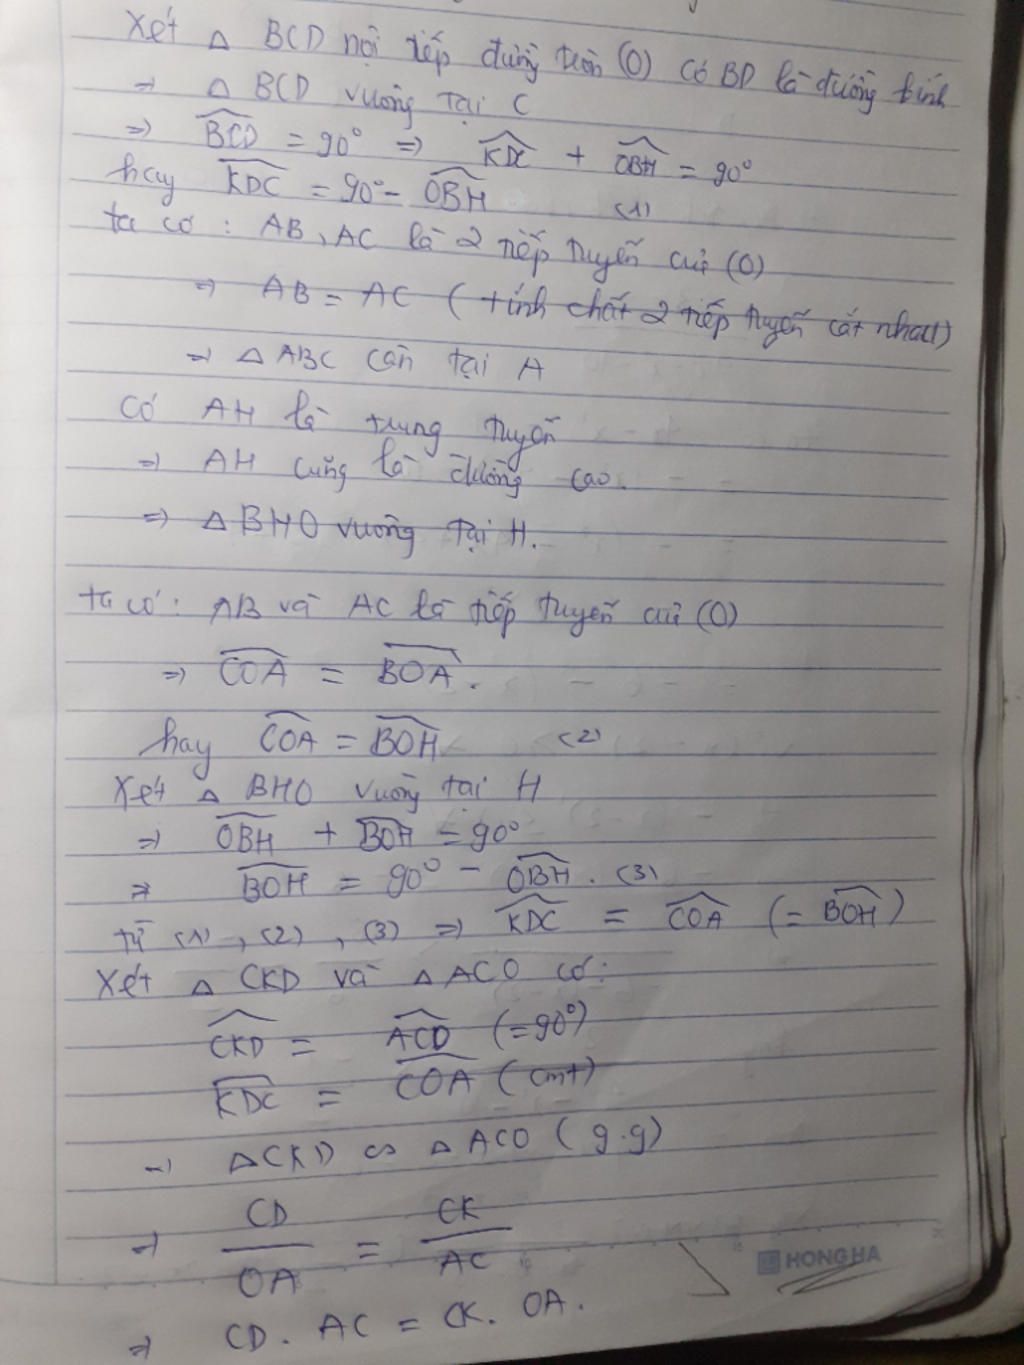 Xét △ BCD nội tiếp đường tròn (O) có BD là đường kính
⇒ △ BCD vuông tại C
⇒ \widehat{BCD} = 90° ⇒ \widehat{KDC} + \widehat{OBH} = 90°
hay \widehat{KDC} = 90° - \widehat{OBH} (1)
ta có : AB, AC là 2 tiếp tuyến của (O)
⇒ AB = AC ( tính chất 2 tiếp tuyến cắt nhau)
⇒ △ ABC cân tại A
Có AH là trung tuyến
⇒ AH cũng là đường cao.
⇒ △ BHO vuông tại H.
ta có : AB và AC là tiếp tuyến của (O)
⇒ \widehat{COA} = \widehat{BOA}.
hay \widehat{COA} = \widehat{BOH} (2)
Xét △ BHO vuông tại H
⇒ \widehat{OBH} + \widehat{BOH} = 90°
⇒ \widehat{BOH} = 90° - \widehat{OBH}. (3)
từ (1), (2), (3) ⇒ \widehat{KDC} = \widehat{COA} (= \widehat{BOH})
Xét △ CKD và △ ACO có:
\widehat{CKD} = \widehat{ACO} (=90°)
\widehat{KDC} = \widehat{COA} (cmt)
⇒ △CKD ∽ △ACO (g.g)
⇒ \frac{CD}{OA} = \frac{CK}{AC}
HONG HA
⇒ CD. AC = CK. OA.